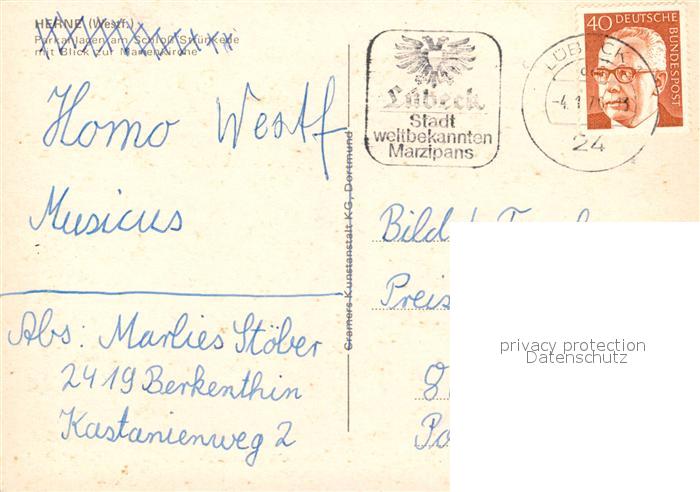 HERNE (Westf.)
Parkanlagen am Schloß Strünkede
mit Blick zur Marienkirche
Homo Westf
Musicus
Abs: Marlies Stöber
2419 Berkenthin
Kastanienweg 2
Cramers Kunstanstalt KG, Dortmund
Lübeck
Stadt
weltbekannten
Marzipans
LÜBECK
24
40 DEUTSCHE
BUNDESPOST
Bild
Preis
privacy protection
Datenschutz